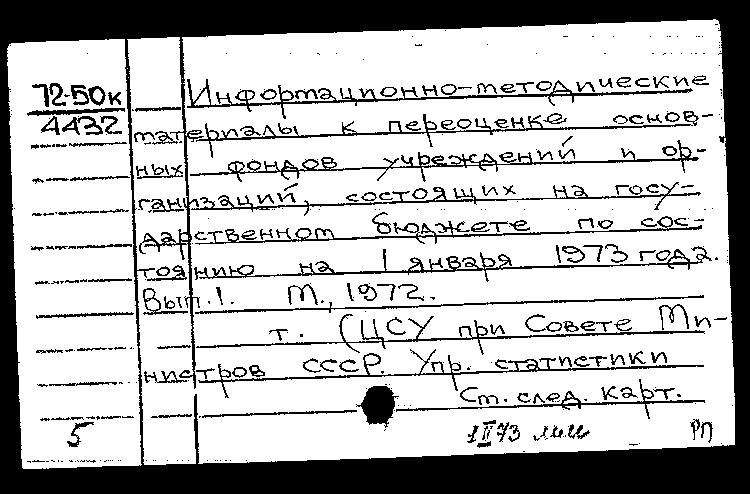 72-50к Информационно-методические
4432 материалы к переоценке основ-
ных фондов учреждений и ор-
ганизаций, состоящих на госу-
дарственном бюджете по сос-
тоянию на 1 января 1973 года.
Вып.1. М., 1972.
т. (ЦСУ при Совете Ми-
нистров СССР. Упр. статистики
См. след. карт.
5 1 II 73 РП